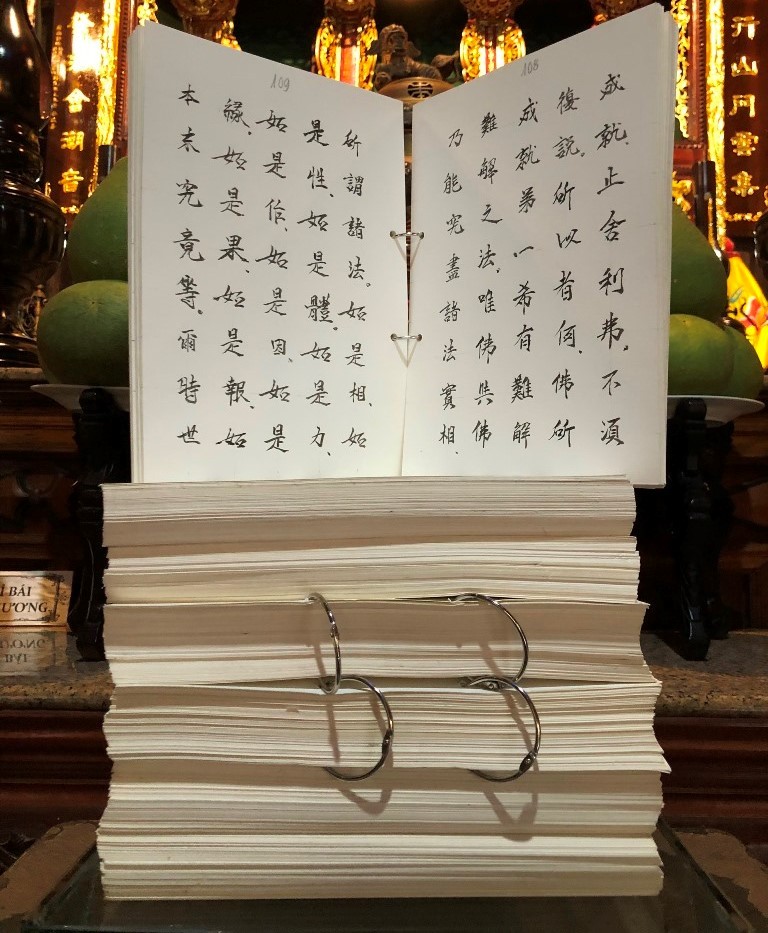 108
成就。止舍利弗。不須
復說。所以者何、佛所
成就第一希有難解
難解之法。唯佛與佛
乃能究盡諸法實相、
109
所謂諸法。如是相、如
是性、如是體。如是力、
如是作、如是因、如是
緣、如是果、如是報、如
本末究竟等。爾時世
BÁI
潮音
山門雲集